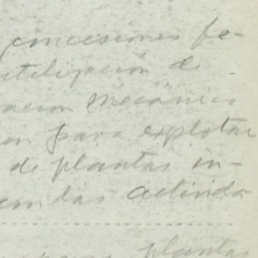 concesiones fe-
utilización d
ación mecánica
en para explotar
de plantas in-
con las activida
plantas